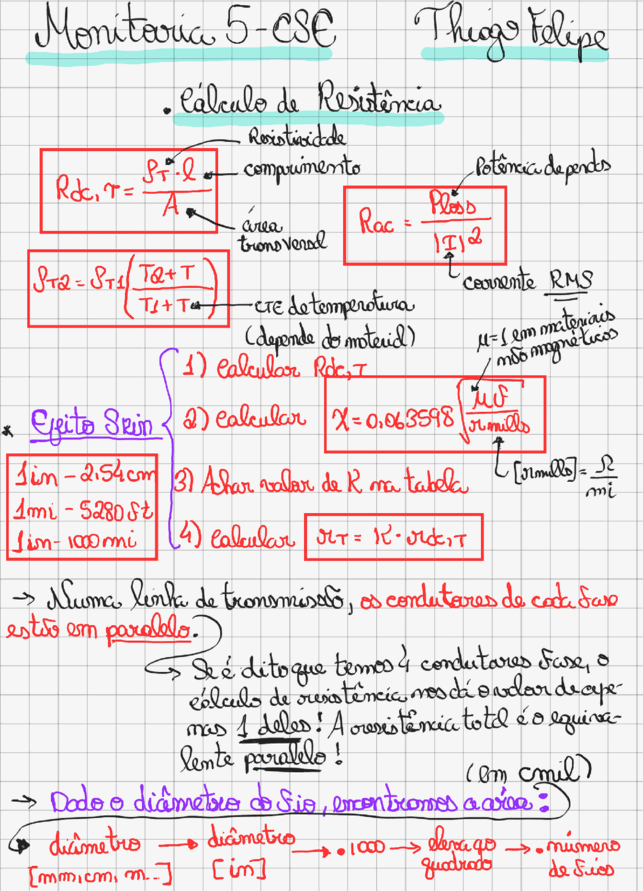 Monitoria 5 - CSE
Thiago Felipe
. Cálculo de Resistência
Rdc,T = ρT . l / A
Resistividade
comprimento
área
transversal
Rac = Ploss / |I|²
Potência de perdas
corrente RMS
ρT2 = ρT1 (T2 + T / T1 + T)
CTE de temperatura
(depende do material)
* Efeito Skin
1) Calcular Rdc,T
2) Calcular X = 0,063598 √(μf / rmilla)
μ = 1 em materiais
não magnéticos
[rmilla] = Ω / mi
3) Achar valor de K na tabela
4) Calcular rT = K . rdc,T
1in - 2,54cm
1mi - 5280ft
1in - 1000mi
→ Numa linha de transmissão, os condutores de cada fase
estão em paralelo.
→ Se é dito que temos 4 condutores fase, o
cálculo de resistência nos dá o valor de ape-
nas 1 deles! A resistência total é o equiva-
lente paralelo!
(em cmil)
→ Dado o diâmetro do fio, encontramos a área:
diâmetro → diâmetro → .1000 → eleva ao → . número
[mm, cm, m...] [in] quadrado de fios